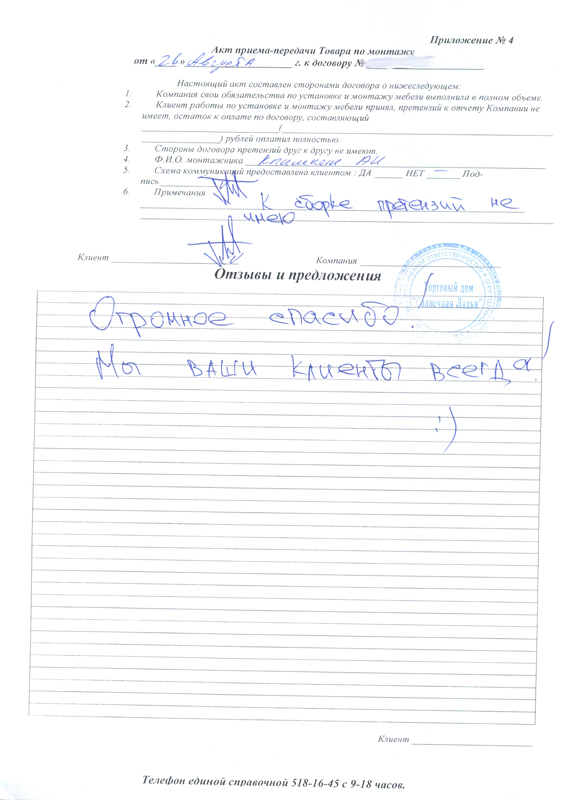 Приложение № 4
Акт приема-передачи Товара по монтажу
от « 26 » Августа г. к договору №
Настоящий акт составлен сторонами договора о нижеследующем:
1. Компания свои обязательства по установке и монтажу мебели выполнила в полном объеме.
2. Клиент работы по установке и монтажу мебели принял, претензий к отчету Компании не
имеет, остаток к оплате по договору, составляющий
(
) рублей оплатил полностью.
3. Стороны договора претензий друг к другу не имеют.
4. Ф.И.О. монтажника
5. Схема коммуникаций предоставлена клиентом : ДА НЕТ Под-
пись
6. Примечания
К сборке претензий не
имею
Клиент Компания
Торговый дом
Отзывы и предложения
Огромное спасибо.
Мы ваши клиенты всегда.
:)
Клиент
Телефон единой справочной 518-16-45 с 9-18 часов.